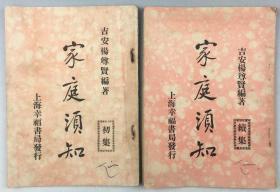 吉安楊尊賢編著
家庭須知
初集
上海幸福書局發行
吉安楊尊賢編著
家庭須知
續集
上海幸福書局發行